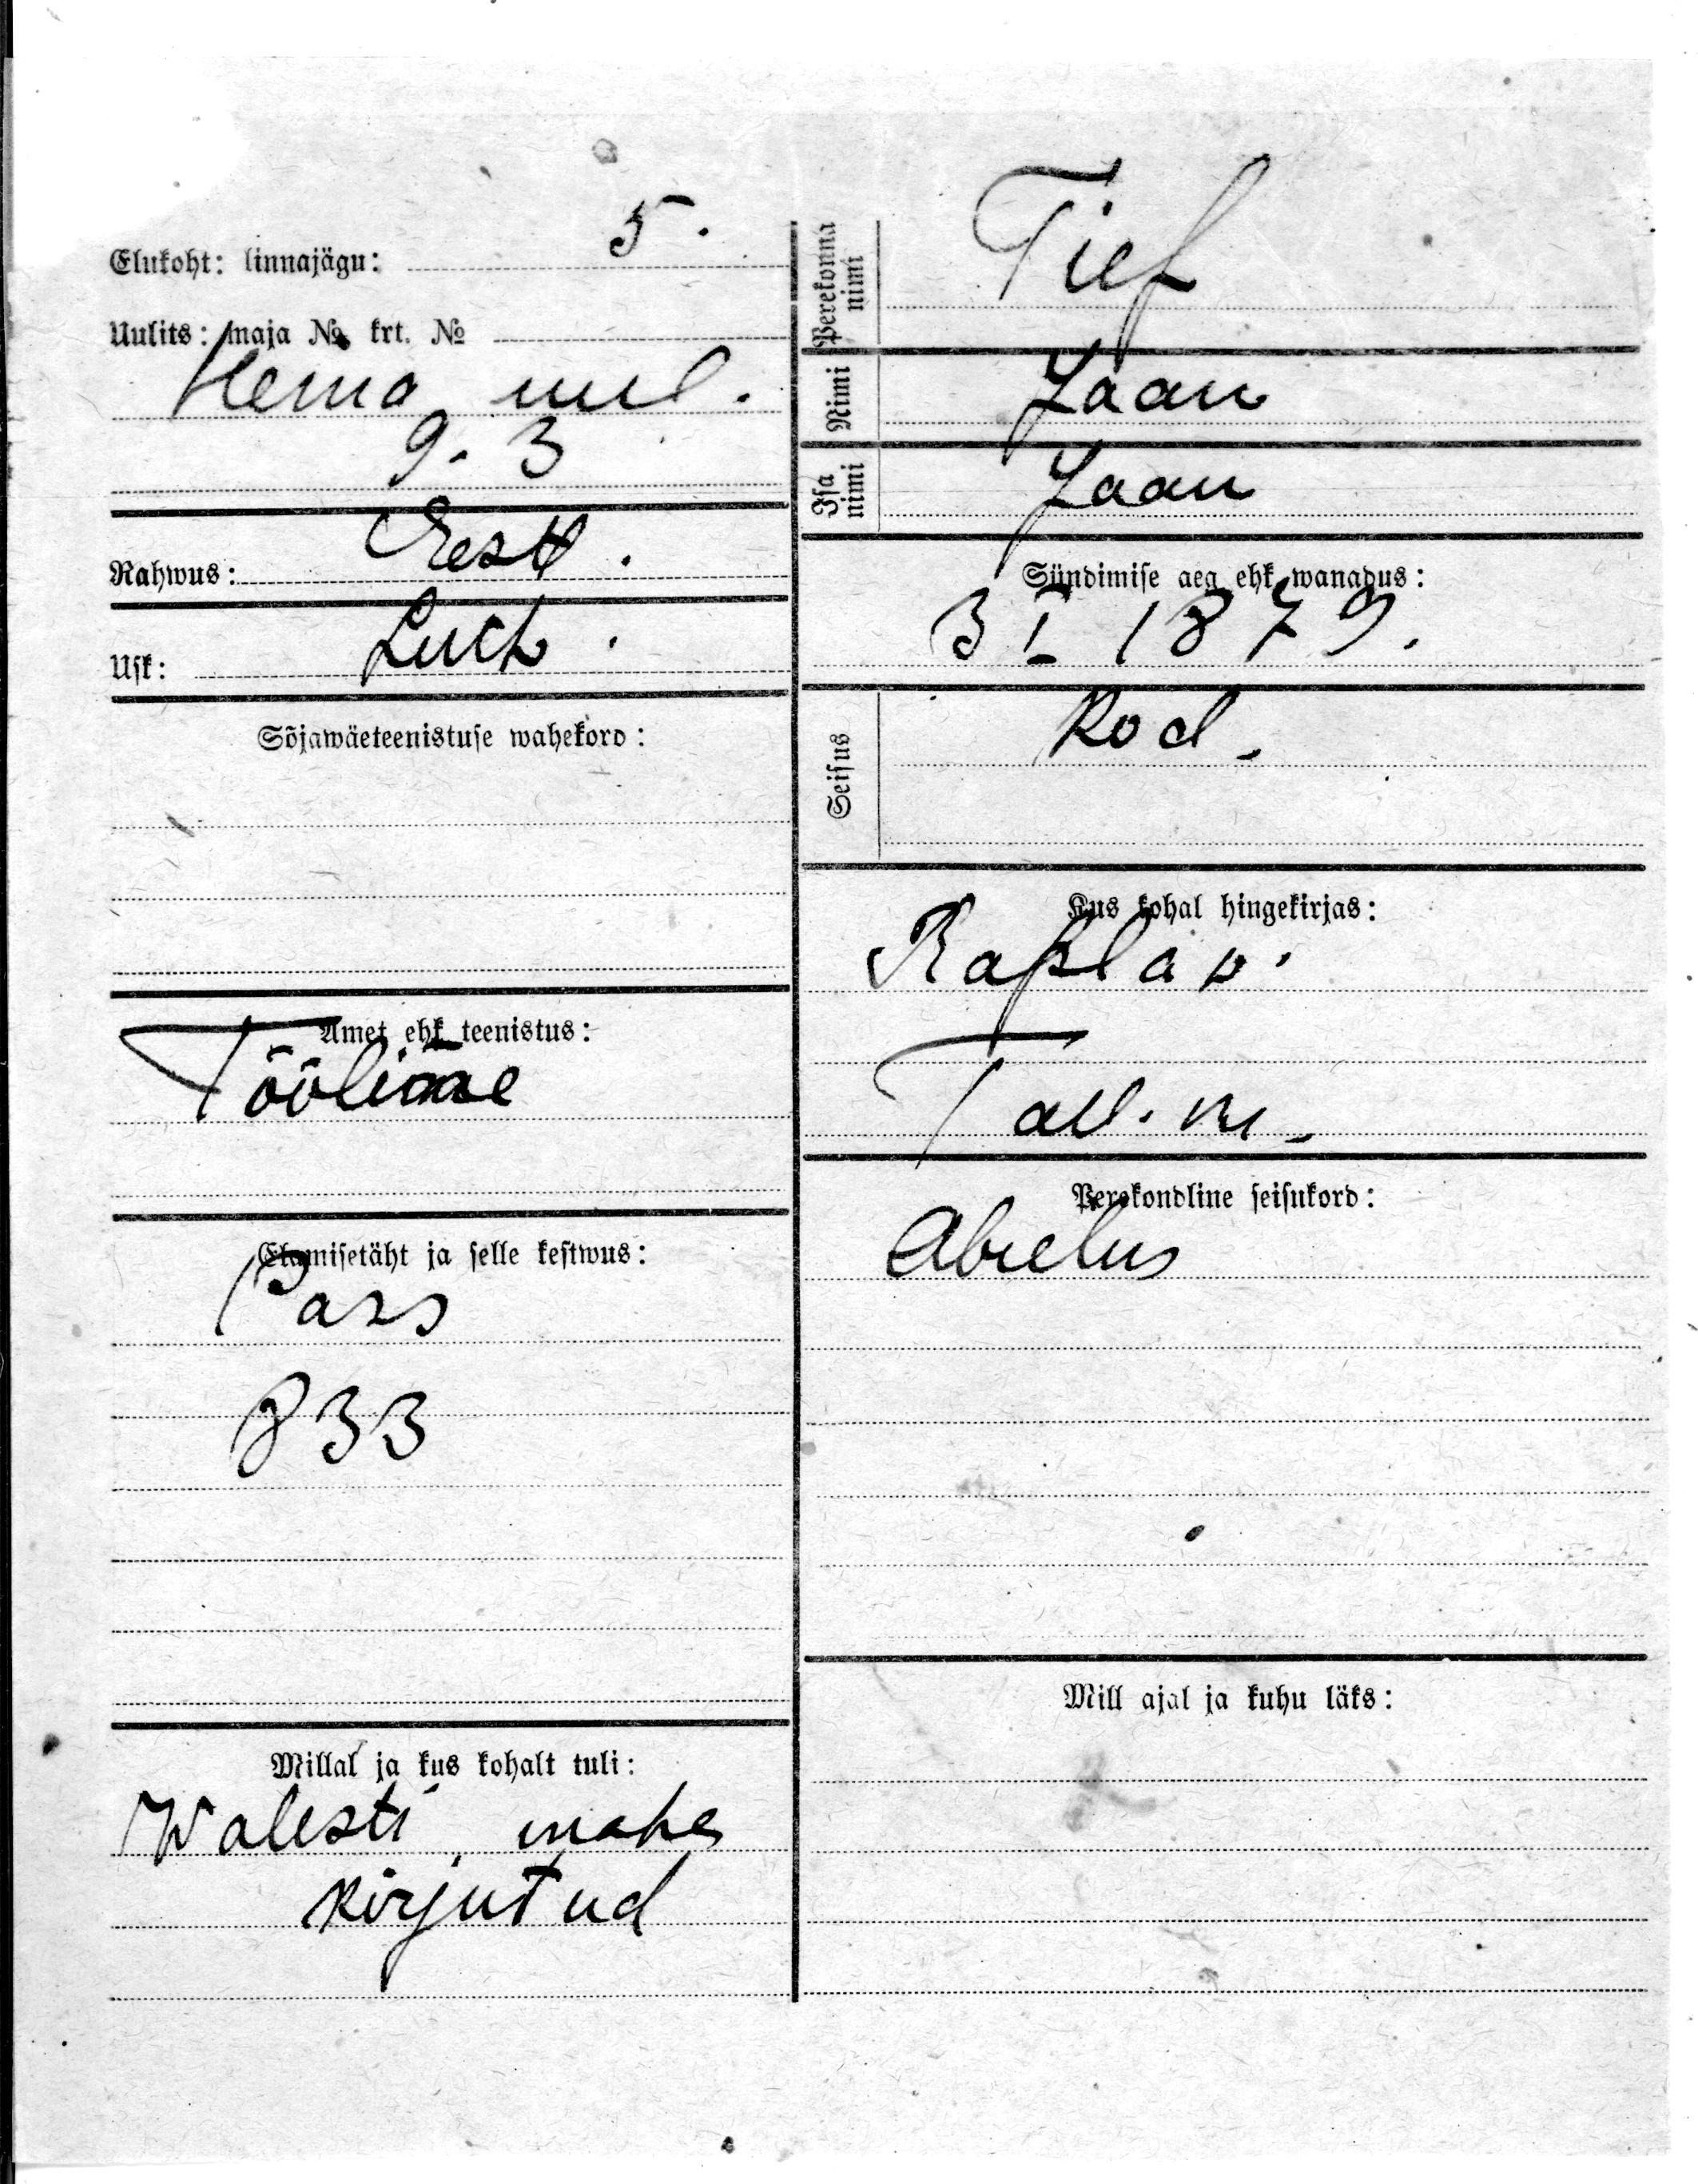 Elukoht: linnajägu: 5.
Uulits: maja № krt. №
Herna uul.
9. 3
Rahwus: Eesti.
Usk: Luth.
Sõjawäeteenistuse wahekord:
Amet ehk teenistus:
Tööline
Elamisetäht ja selle kestwus:
Pass
833
Millal ja kus kohalt tuli:
Walesti maha
kirjutud
Perekonna nimi Tief
Nimi Jaan
Isa nimi Jaan
Sündimise aeg ehk wanadus:
3 I 1879.
Seisus Kod.
Kus kohal hingekirjas:
Rapla v.
Tall. m.
Perekondline seisukord:
Abielus
Mill ajal ja kuhu läks: